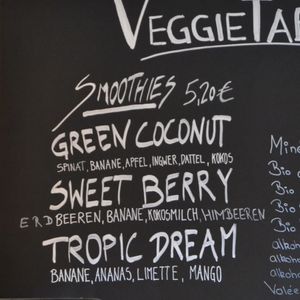 VEGGIETA
SMOOTHIES 5,20€
GREEN COCONUT
SPINAT, BANANE, APFEL, INGWER, DATTEL, KOKOS
SWEET BERRY
ERDBEEREN, BANANE, KOKOSMILCH, HIMBEEREN
TROPIC DREAM
BANANE, ANANAS, LIMETTE, MANGO
Mine
Bio
Bio
Bio
Bio
alkoho
alkoho
alkoho
Volée